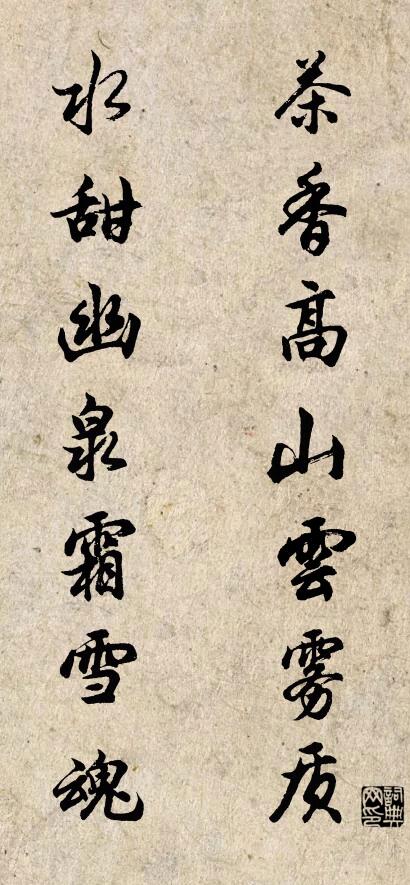 茶香高山雲雾质
水甜幽泉霜雪魂
詞典网印